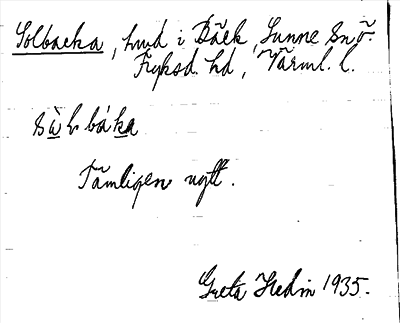 Solbacka, hmd i Bäck, Sunne Snö.
Fryksd. hd, Värml. l.
sàlbáka
Tämligen nytt.
Greta Hedin 1935.